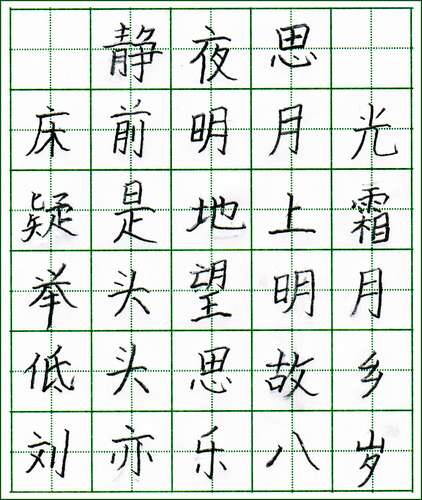 静夜思
床前明月光
疑是地上霜
举头望明月
低头思故乡
刘亦乐八岁